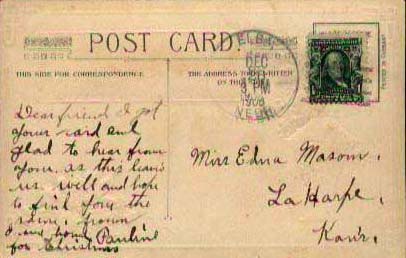 POST CARD
THIS SIDE FOR CORRESPONDENCE
THE ADDRESS TO BE WRITTEN
ON THIS
ELBA
DEC
3 PM
1908
NEBR
Dear friend I got
your card and
glad to hear from
you. as this leavs
us well and hope
to find you the
same. from
Pauline
for Christmas
Miss Edna Mason.
La Harpe,
Kans.